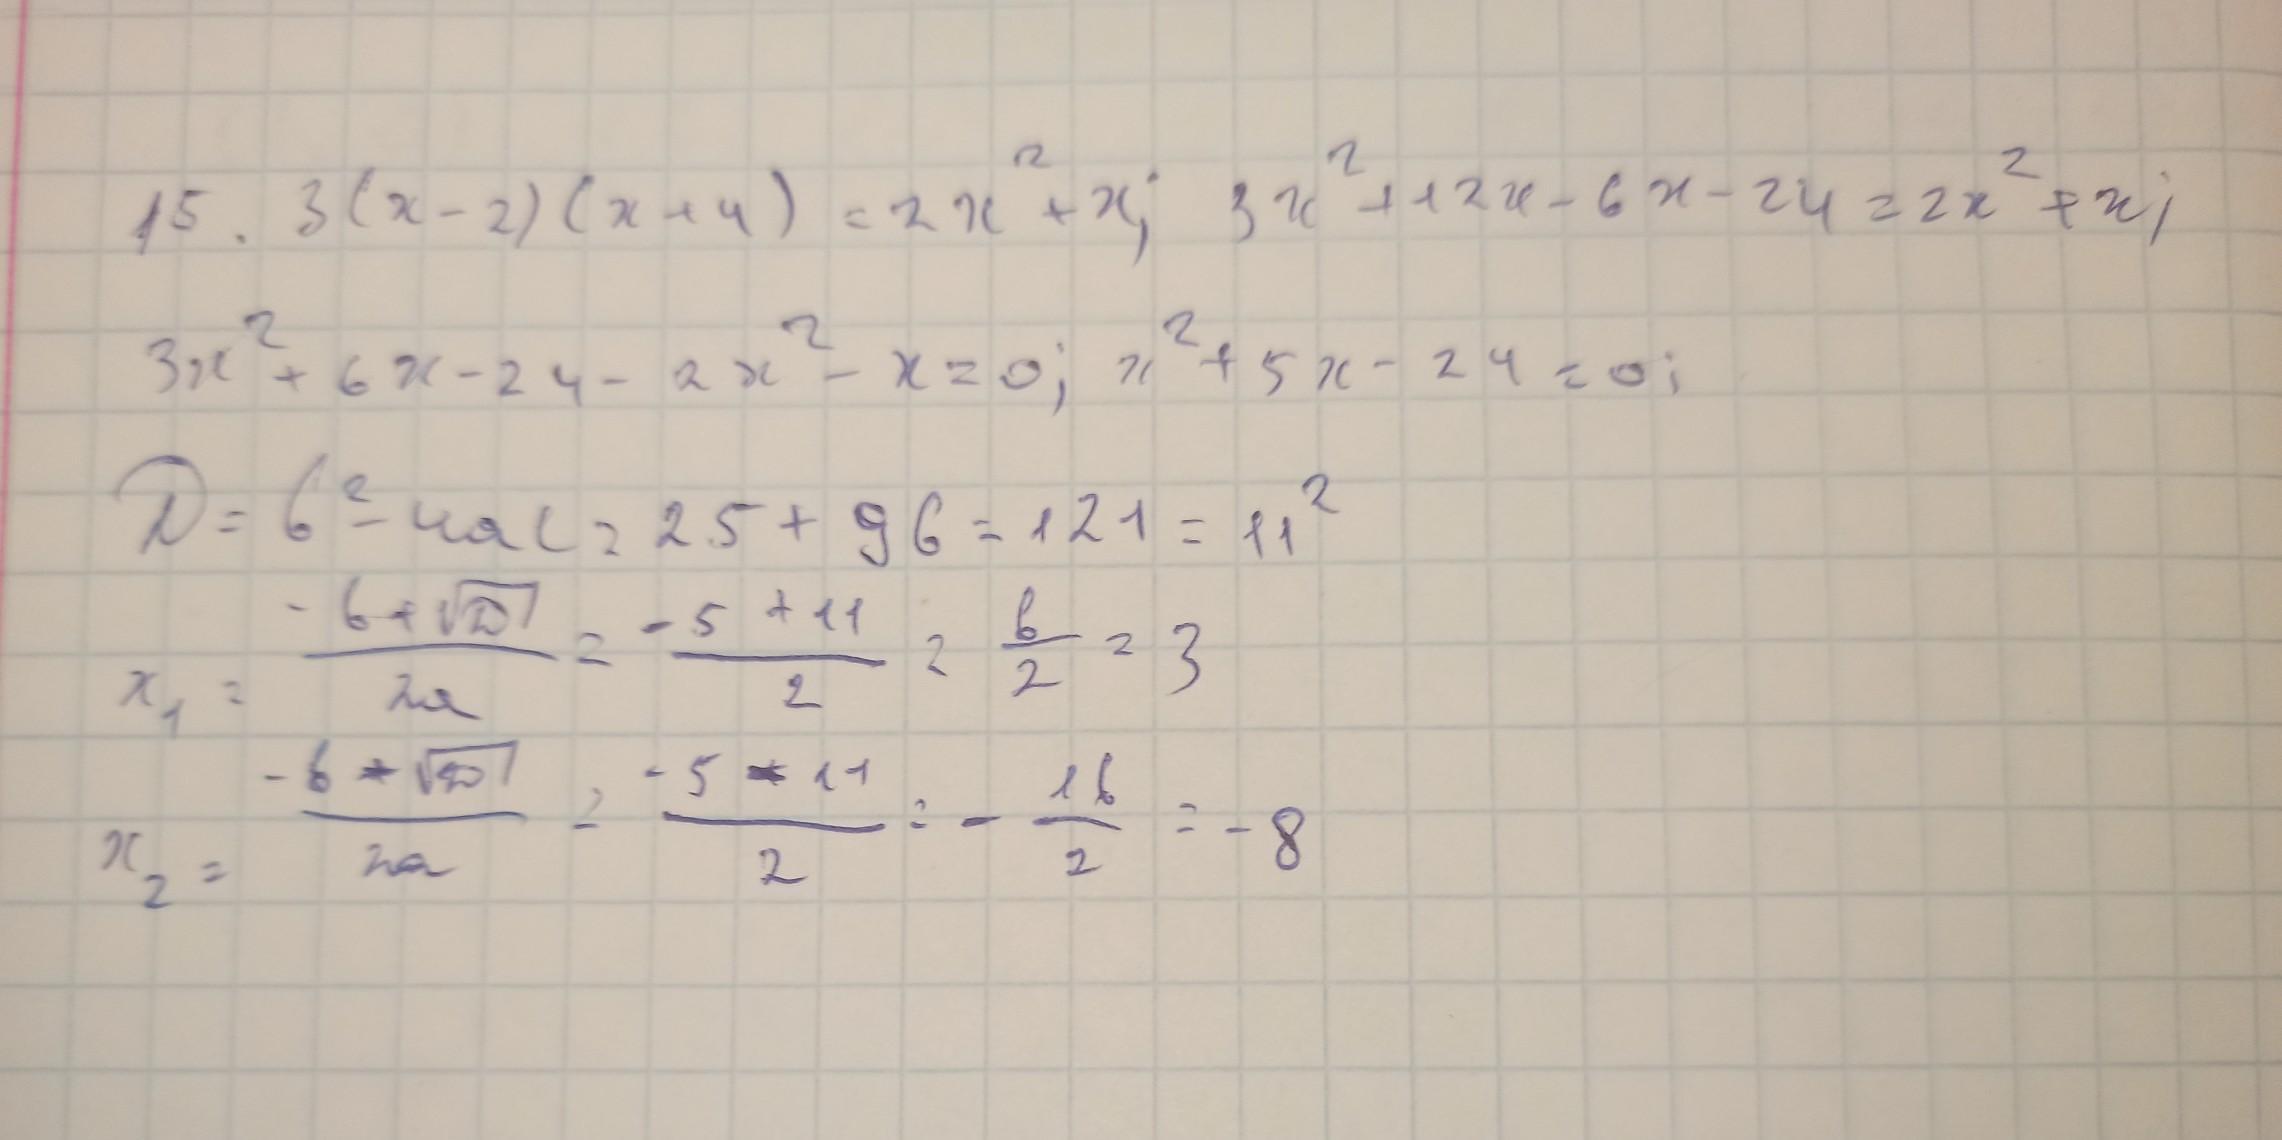 15. 3(x-2)(x+4)=2x²+x; 3x²+12x-6x-24=2x²+x;
3x²+6x-24-2x²-x=0; x²+5x-24=0;
D=b²-4ac=25+96=121=11²
x₁ = (-b+√D)/2a = (-5+11)/2 = 6/2 = 3
x₂ = (-b-√D)/2a = (-5-11)/2 = -16/2 = -8